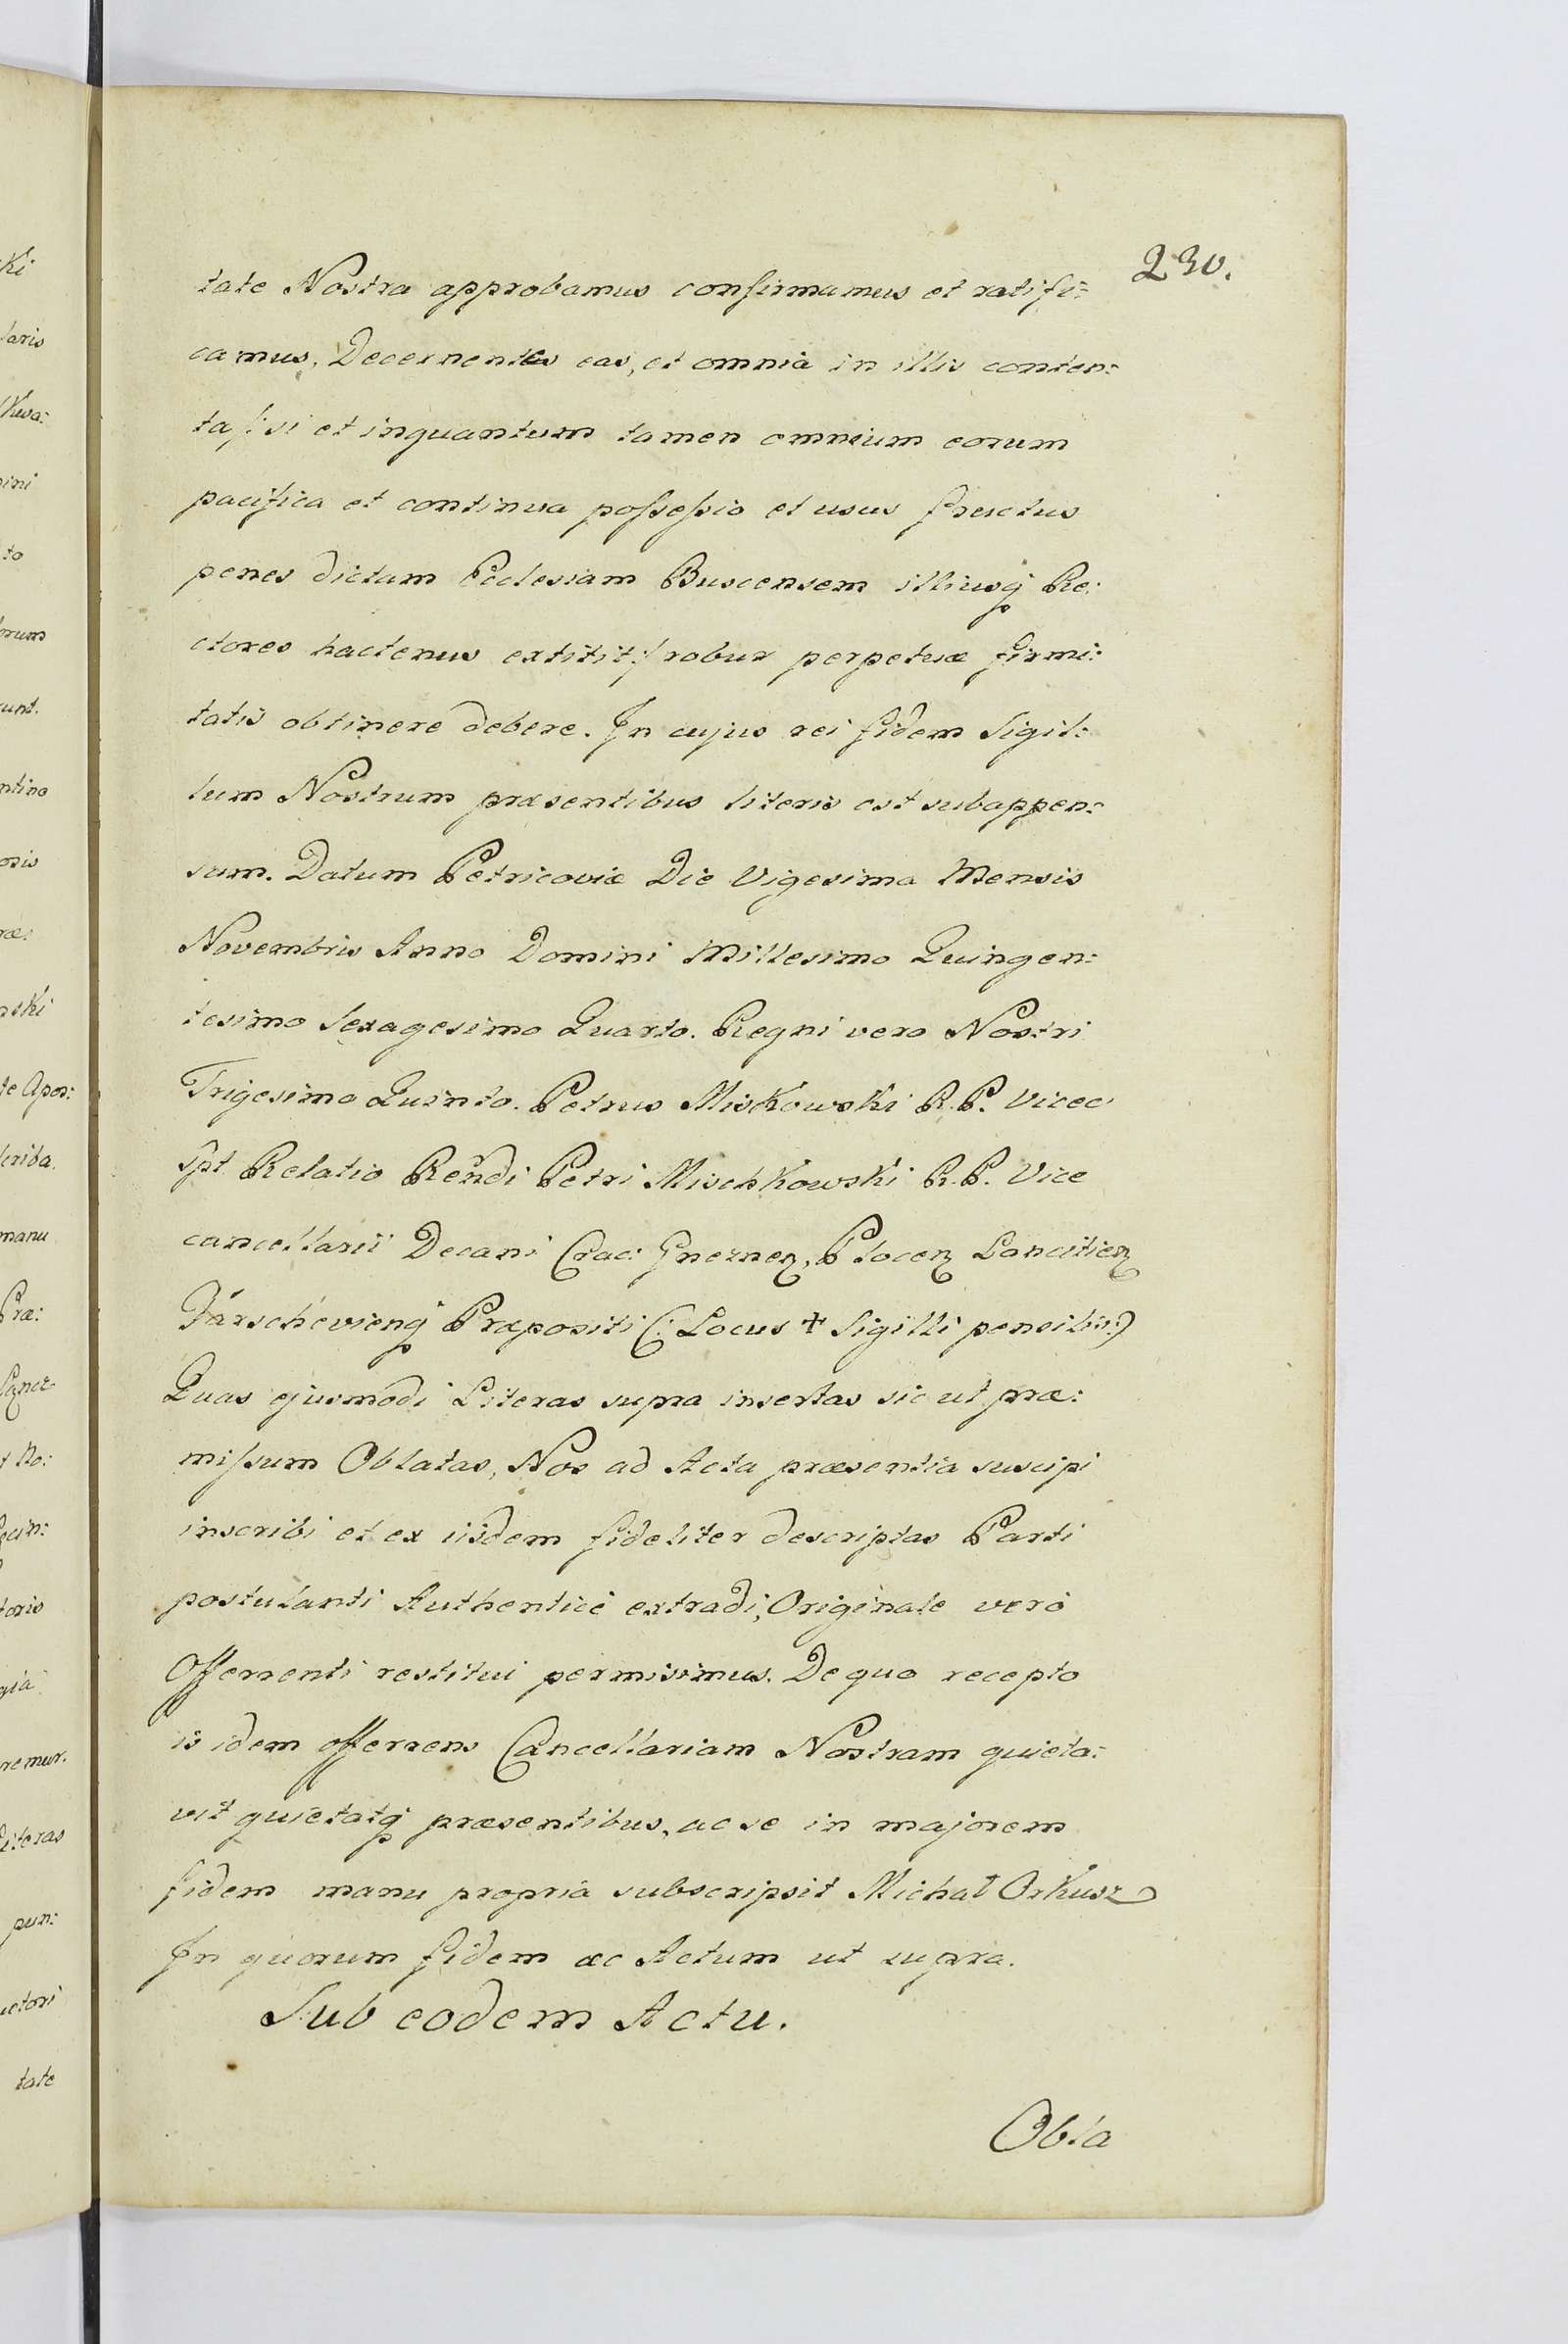 230.
tate Nostra approbamus confirmamus et ratifi:
camus. Decernentes eas, et omnia in illis conten:
ta /: si et inquantum tamen omnium eorum
pacifica et continua possessio et usus fructus
penes dictam Ecclesiam Buscensem illiusq Re:
ctores hactenus extitit :/ robur perpetuæ firmi:
tatis obtinere debere. In cujus rei fidem Sigil:
lum Nostrum præsentibus literis est subappen:
sum. Datum Petricoviæ Die Vigesima Mensis
Novembris Anno Domini Millesimo Quingen:
tesimo Sexagesimo Quarto. Regni vero Nostri
Trigesimo Quinto. Petrus Miskowski R. P. Vicec
spt Relatio Rendi Petri Mischkowski R. P. Vice
cancellarii Decani Crac: Gneznen, Plocen Lancitien
Varschevienq Præpositi (: Locus + Sigilli pensilis :)
Quas ejusmodi Literas supra insertas sic ut præ:
missum Oblatas, Nos ad Acta præsentia suscipi
inscribi et ex iisdem fideliter descriptas Parti
postulanti Authentice extradi, Originale vero
Offerrenti restitui permisimus. De quo recepto
is idem offerrens Cancellariam Nostram quieta:
vit quietatq præsentibus, ac se in majorem
fidem manu propria subscripsit Michał Orkusz
In quorum fidem ac Actum ut supra.
Sub eodem Actu.
Obla